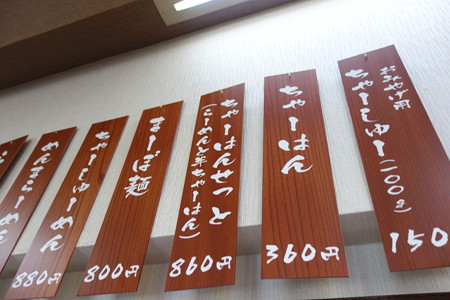 おみやげ用
ちゃーしゅー(200g)
150
ちゃーはん
360円
ちゃーはんせっと
(らーめんと半ちゃーはん)
860円
まーぼ麺
800円
ちゃーしゅーめん
880円
めんまらーめん